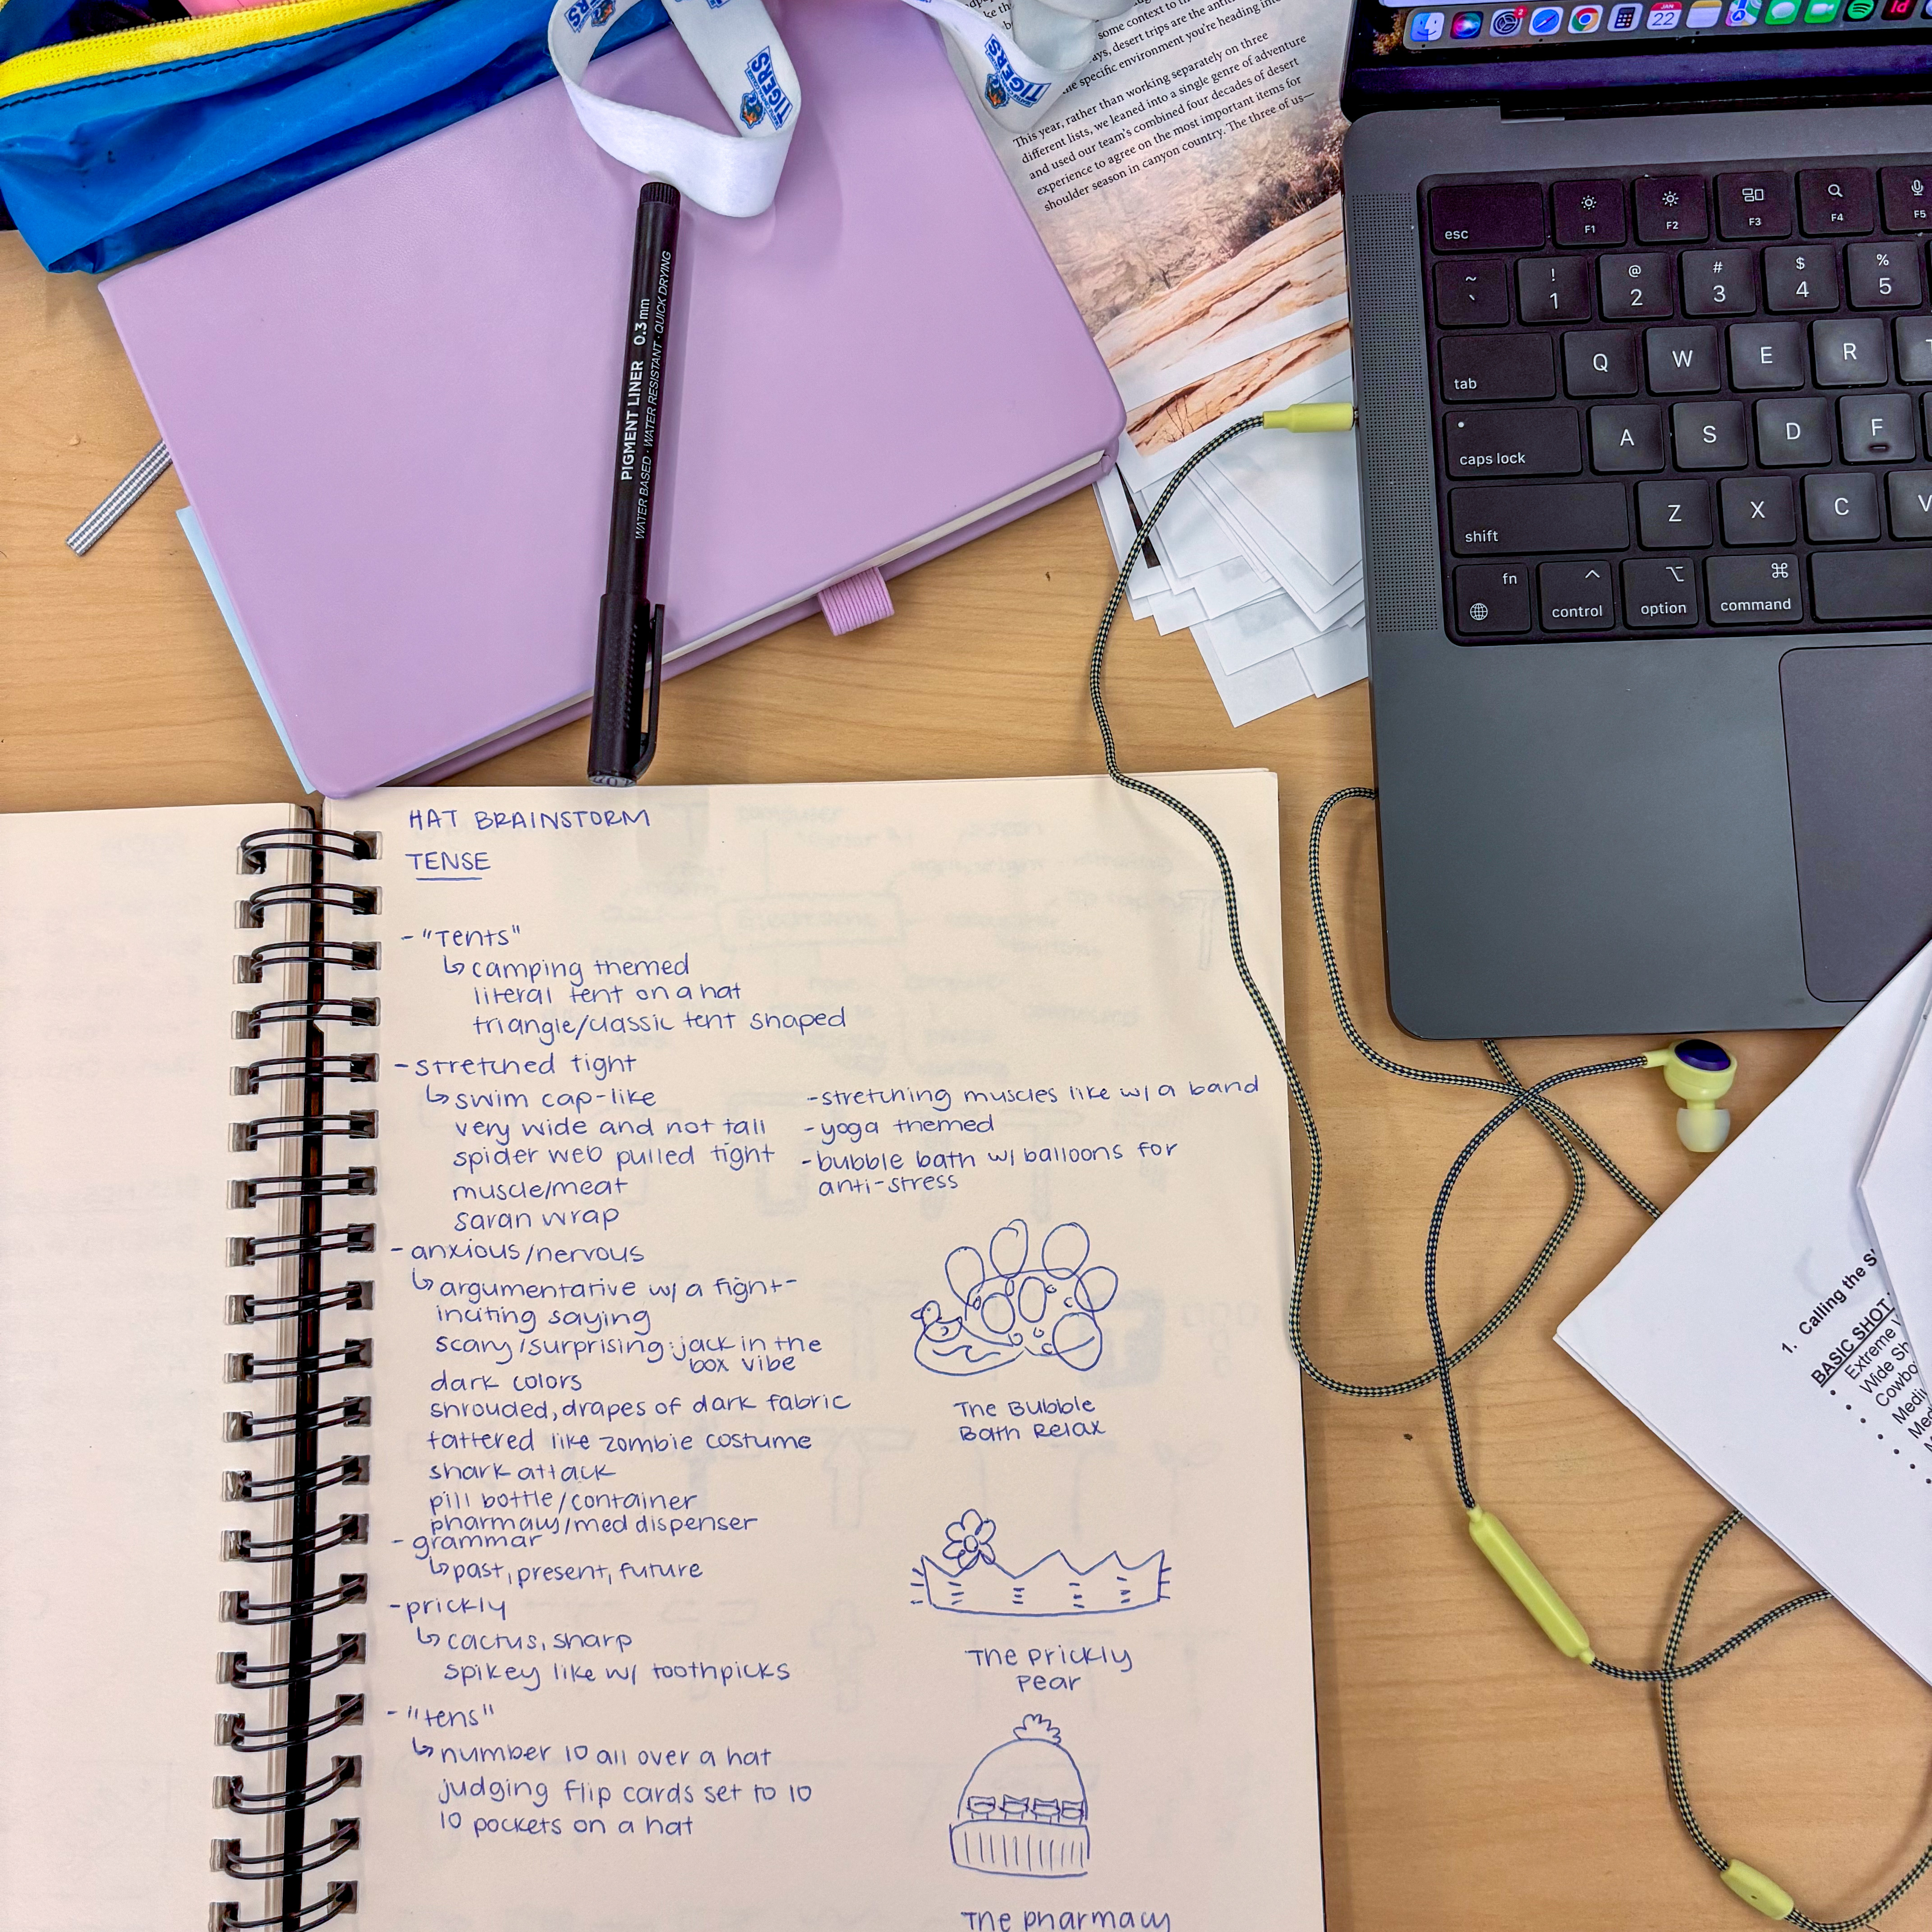 TIGERS
TIGERS
some context to
ays, desert trips are the
specific environment you're heading into
This year, rather than working separately on three
different lists, we leaned into a single genre of adventure
and used our team's combined four decades of desert
experience to agree on the most important items for
shoulder season in canyon country. The three of us—
PIGMENT LINER 0.3 mm
WATER BASED · WATER RESISTANT · QUICK DRYING
JAN
22
2
Id
esc
F1
F2
F3
F4
F5
~ ! @ # $ %
` 1 2 3 4 5
tab Q W E R
caps lock A S D F
shift Z X C V
fn control option command
HAT BRAINSTORM
TENSE
- "Tents"
↳ camping themed
literal tent on a hat
triangle/classic tent shaped
- stretched tight
↳ swim cap-like
very wide and not tall
spider web pulled tight
muscle/meat
saran wrap
- stretching muscles like w/ a band
- yoga themed
- bubble bath w/ balloons for
anti-stress
- anxious/nervous
↳ argumentative w/ a fight-
inciting saying
scary/surprising: jack in the
box vibe
dark colors
shrouded, drapes of dark fabric
tattered like zombie costume
shark attack
pill bottle/container
pharmacy/med dispenser
- grammar
↳ past, present, future
- prickly
↳ cactus, sharp
spikey like w/ toothpicks
- "tens"
↳ number 10 all over a hat
judging flip cards set to 10
10 pockets on a hat
The Bubble
Bath Relax
The Prickly
Pear
The pharmacy
1. Calling the S
BASIC SHOT
• Extreme
• Wide Sh
• Cowbo
• Medi